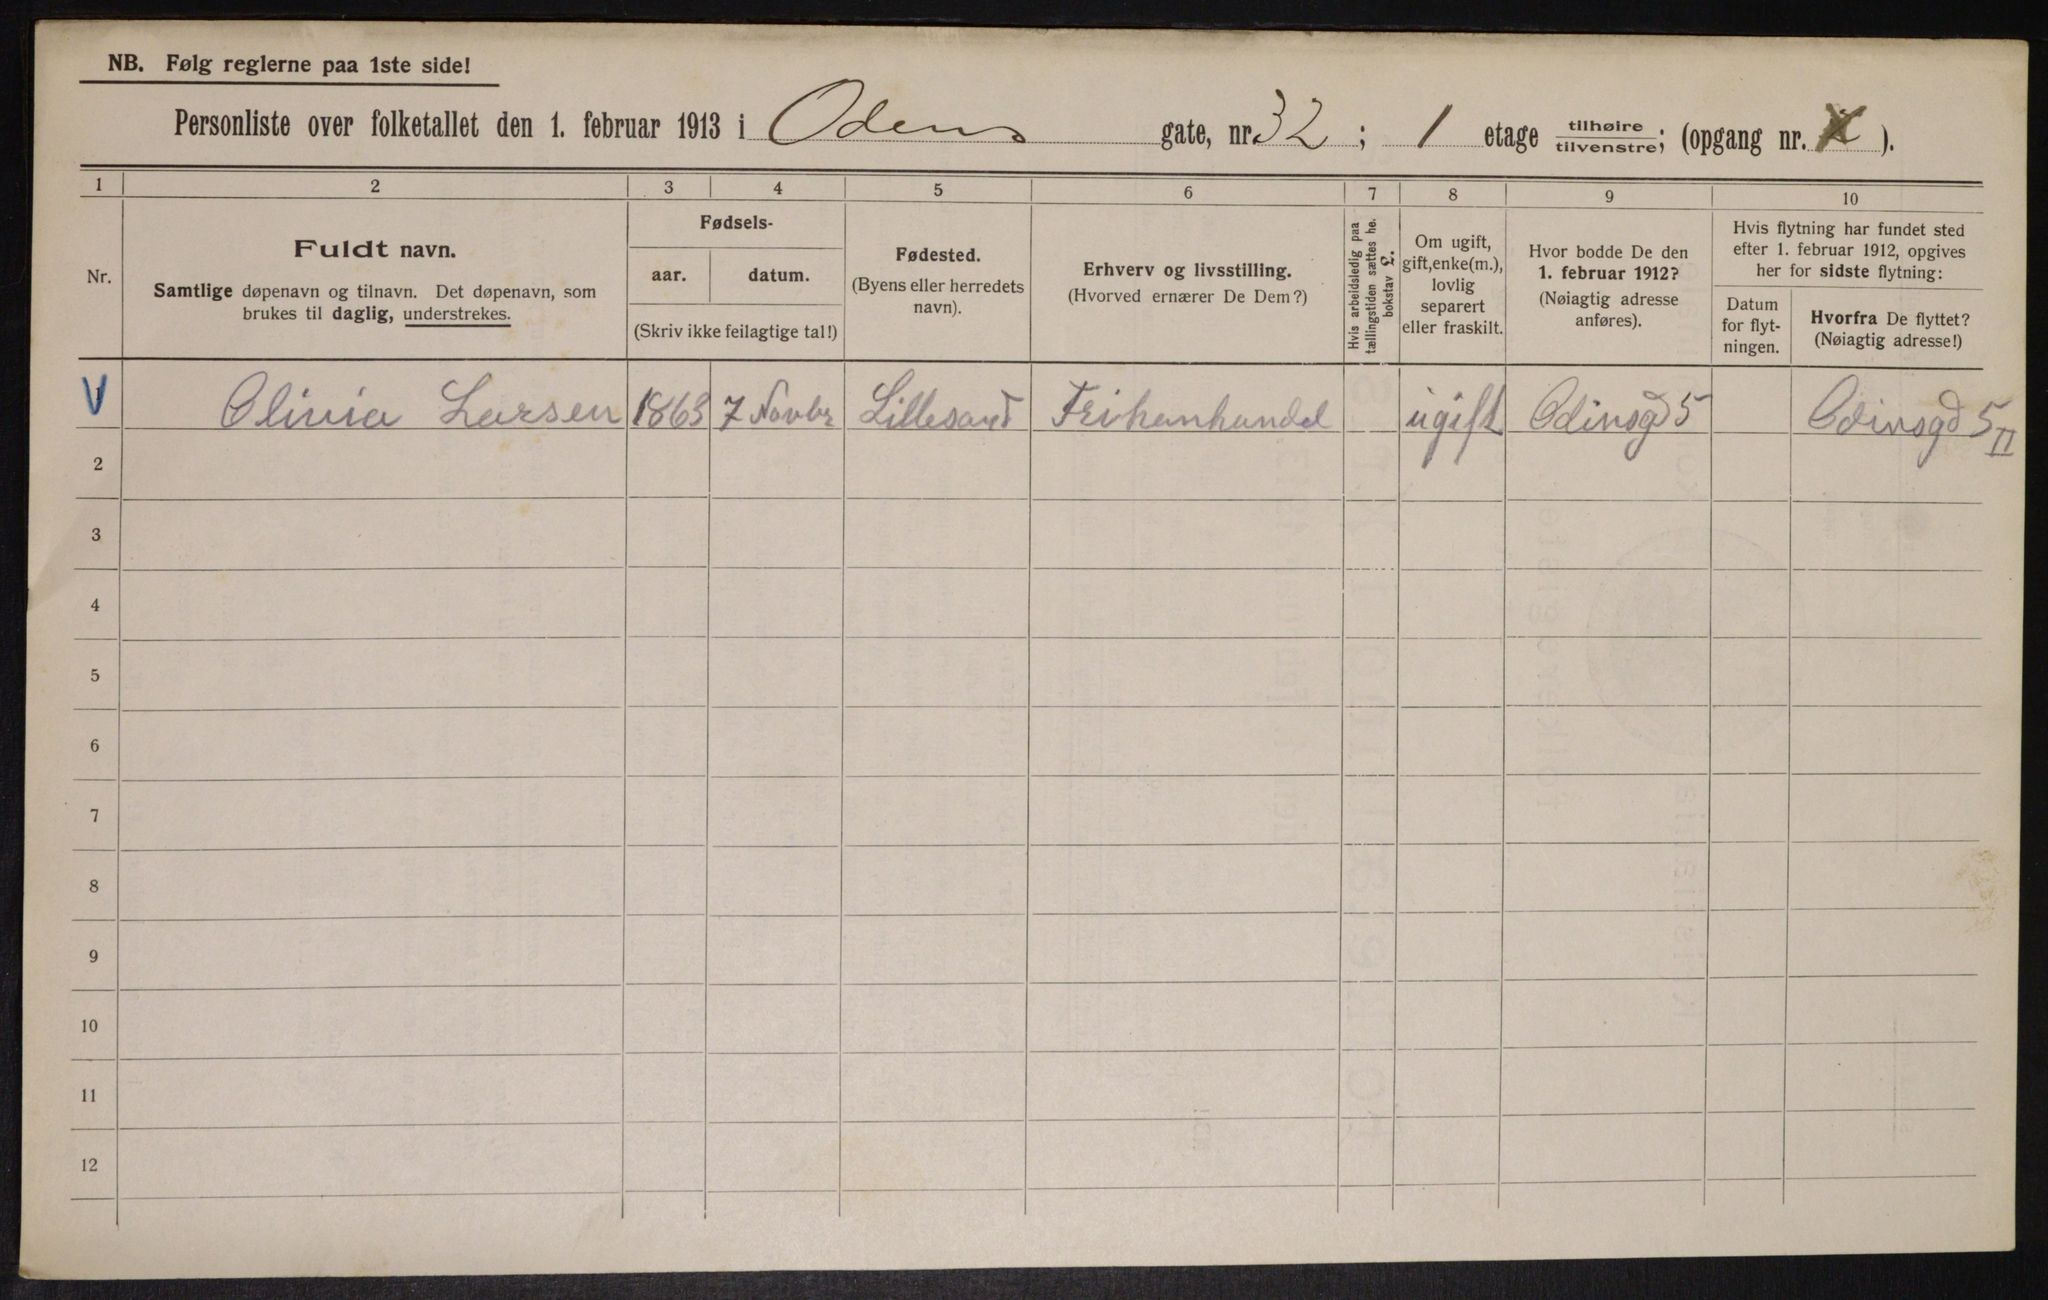 NB. Følg reglerne paa 1ste side!
Personliste over folketallet den 1. februar 1913 i Odens gate, nr. 32 ; 1 etage tilhøire / tilvenstre ; (opgang nr. ).
1 2 3 4 5 6 7 8 9 10
Nr.
Fuldt navn.
Samtlige døpenavn og tilnavn. Det døpenavn, som
brukes til daglig, understrekes.
Fødsels-
aar. datum.
(Skriv ikke feilagtige tal!)
Fødested.
(Byens eller herredets
navn).
Erhverv og livsstilling.
(Hvorved ernærer De Dem?)
Hvis arbeidsledig paa
tællingstiden sættes he.
bokstav L.
Om ugift,
gift, enke(m.),
lovlig
separert
eller fraskilt.
Hvor bodde De den
1. februar 1912?
(Nøiagtig adresse
anføres).
Hvis flytning har fundet sted
efter 1. februar 1912, opgives
her for sidste flytning:
Datum
for flyt-
ningen.
Hvorfra De flyttet?
(Nøiagtig adresse!)
Olivia Larsen 1863 7 Novbr Lillesand Frihanhandel ugift Odinsgd 5 Odinsgd 5 II
2
3
4
5
6
7
8
9
10
11
12